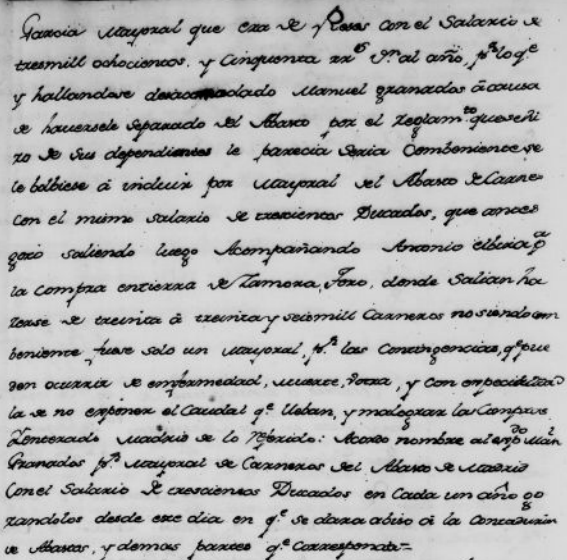 Garcia Mayoral que era de Reses con el Salario de
tresmill ochocientos, y Cinquenta rrs. Vn. al año, pr. lo qe.
y hallandose desacomodado Manuel granados à causa
de haversele separado del Abasto por el reglamto. que se hi
zo de sus dependientes le parecia seria Combeniente se
le bolbiese à incluir por Mayoral del Abasto de Carne
con el mismo salario de trescientos Ducados, que antes
gozò saliendo luego Acompañando Antonio pa.
la compra entierra de Zamora, Toro, donde Salian ha
zerse de treinta à treinta y seismill Carneros no siendo com
beniente fuese solo un Mayoral, pr. las Contingencias, qe. pue
den ocurrir de enfermedad, muerte, ù otra, y con especialida
la de no exponer el Caudal qe. lleban, y malograr las Compras
Y enterado Madrid de lo referido: Acordo nombre al expdo. Manl.
Granados pr. Mayoral de Carneros del Abasto de Madrid
Con el Salario de trescientos Ducados en Cada un año go
zandolos desde este dia en qe. se dara abiso à la Contaduria
de Abastos, y demas partes qe. Corresponda =